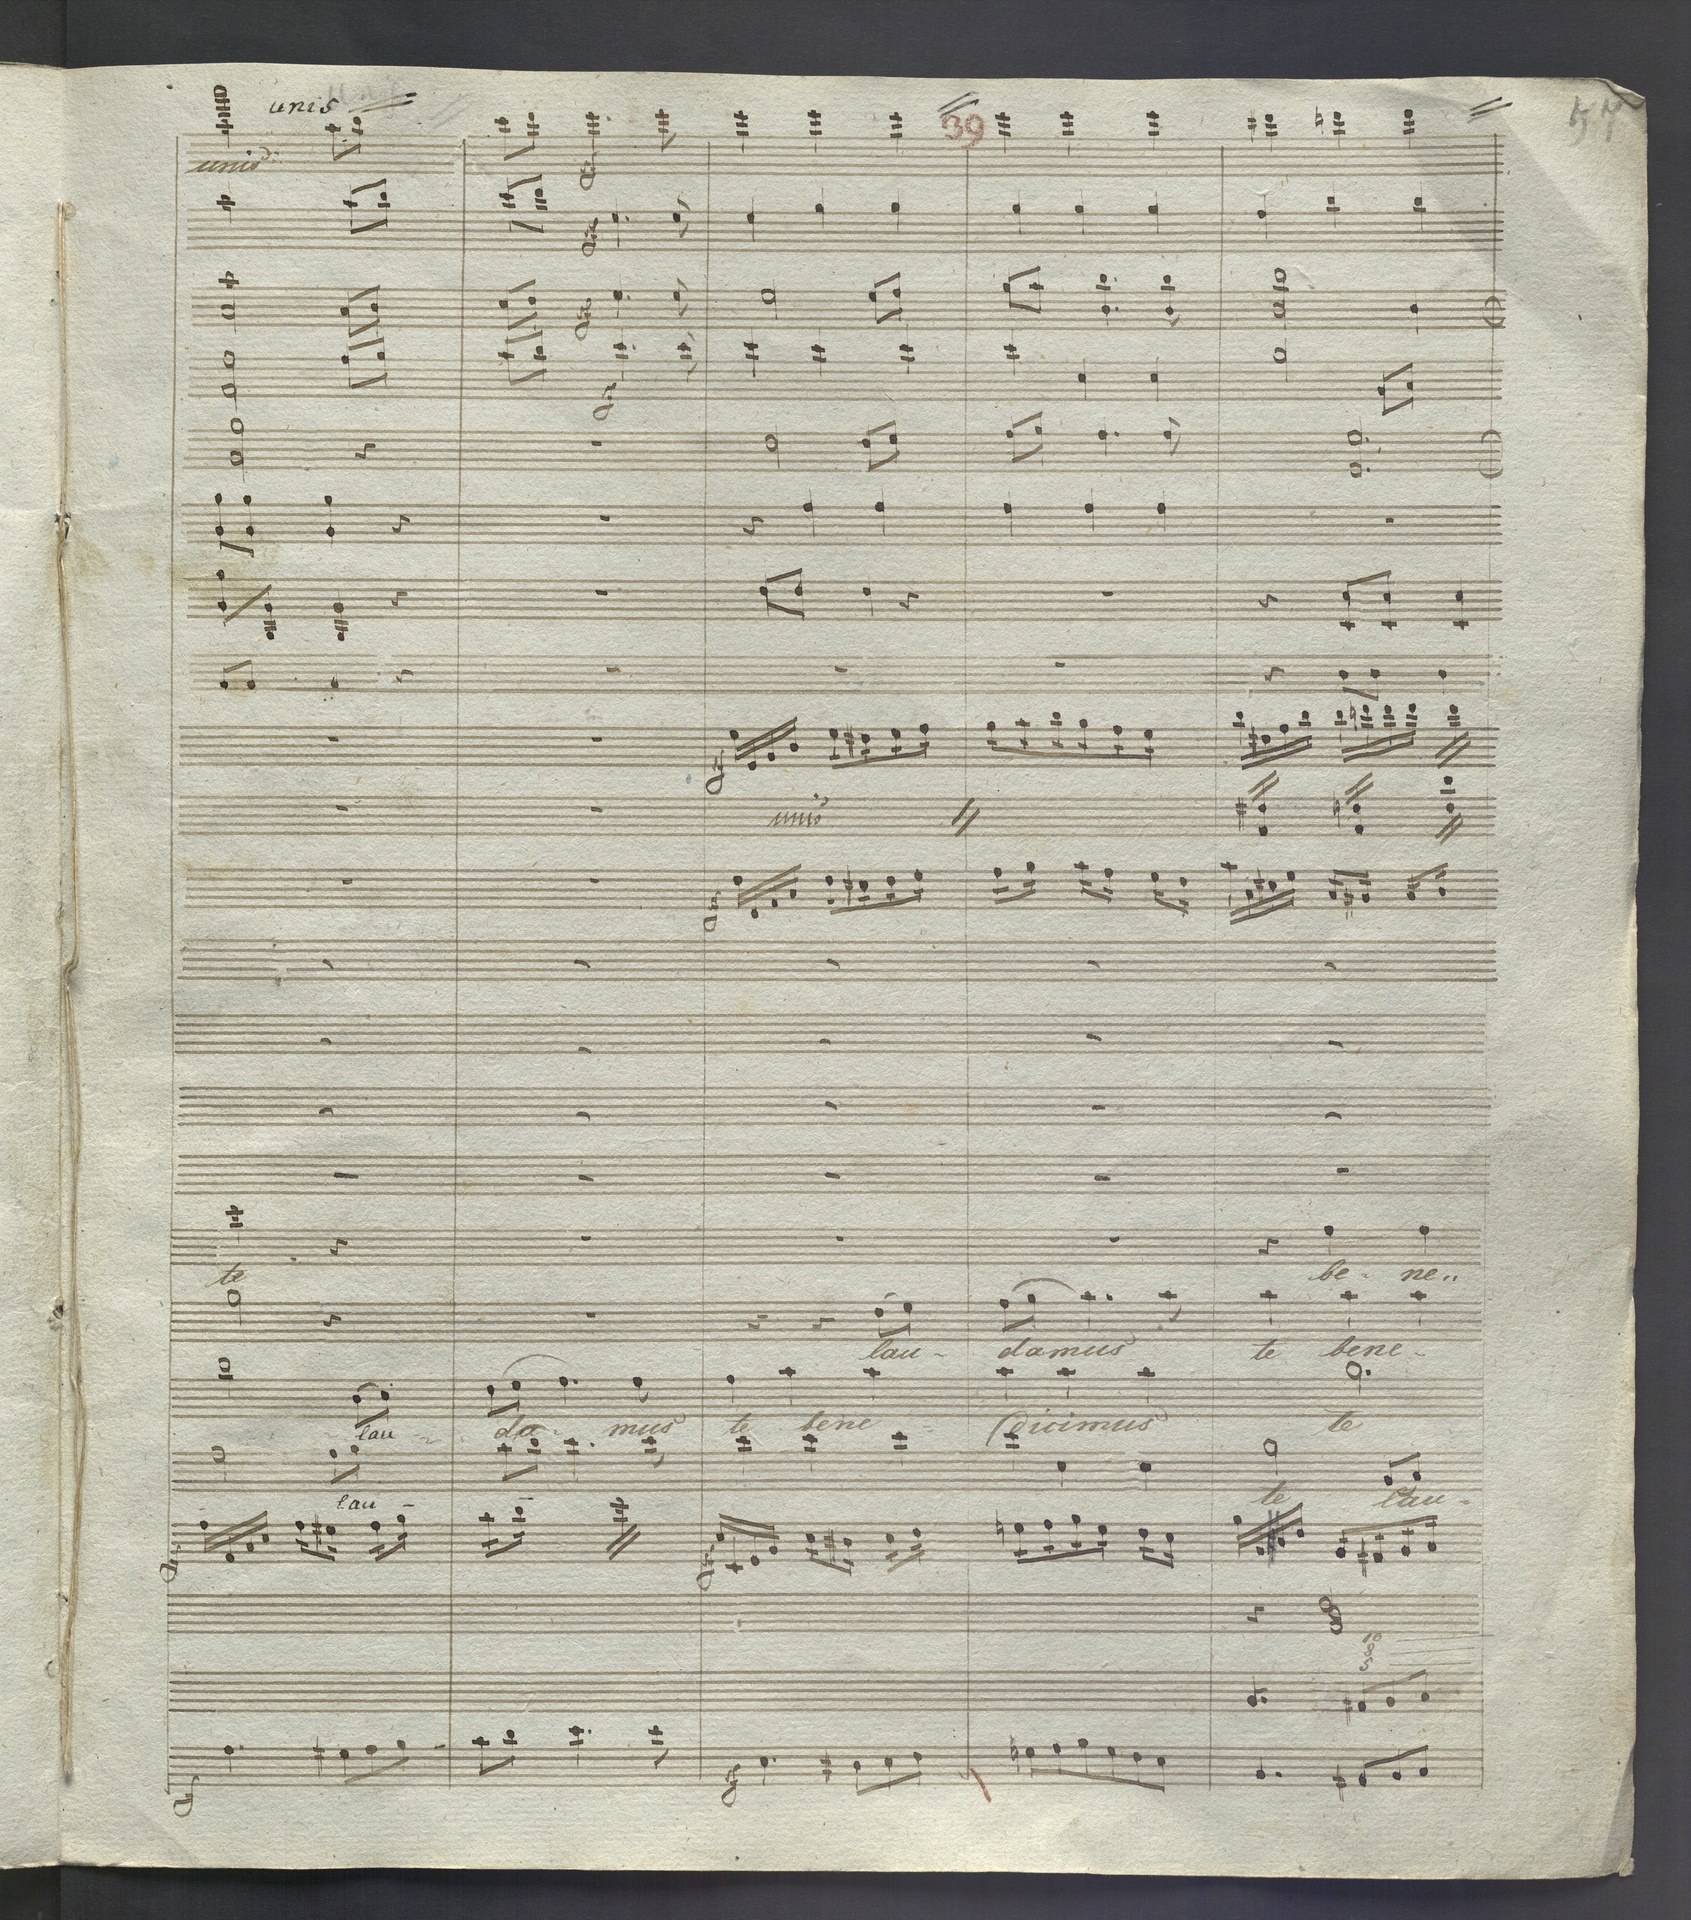 unis
39
57
unis
unis
te be - ne..
lau - damus te bene -
lau - da - mus te bene - dicimus te
lau - te lau -
10
8
5